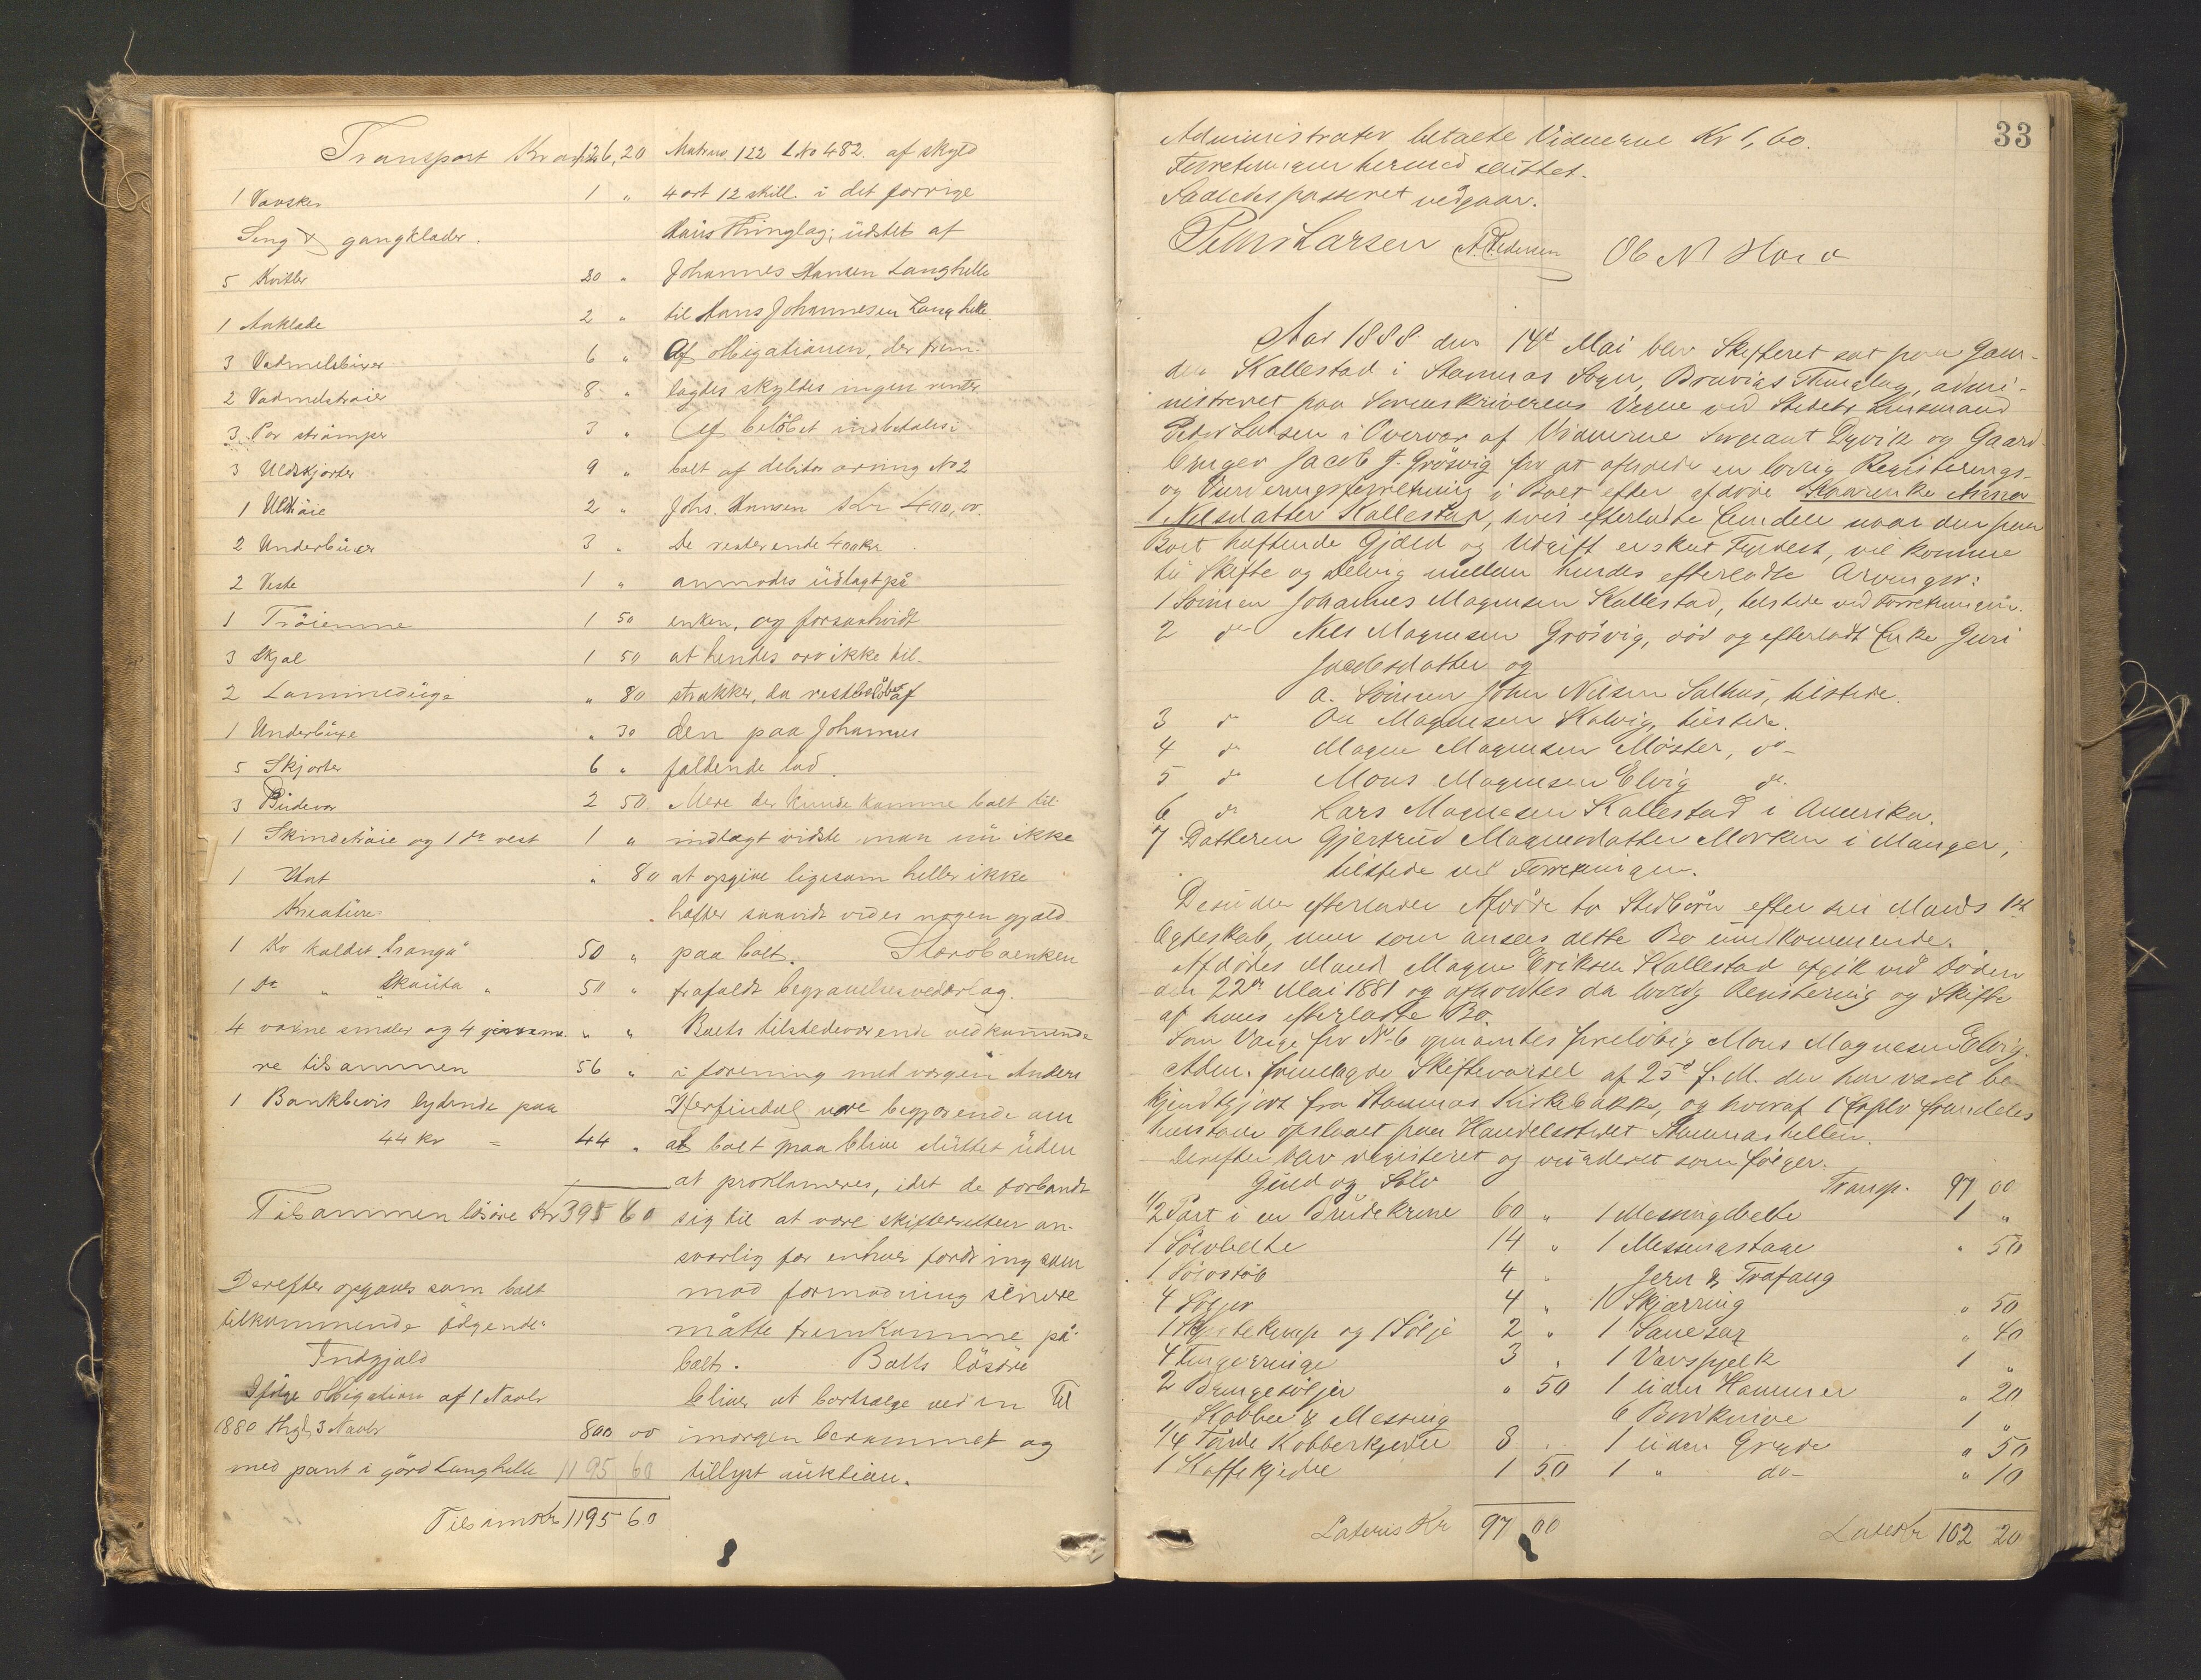 Transport Kroner 126,20
1 Vævske 1 "
Seng & gangklæder.
5 Kvitler 20 "
1 Aaklæde 2 "
3 Vadmelsbuxer 6 "
2 Vadmelstrøier 8 "
3 Par strømper 3 "
3 Uldskjorter 9 "
1 Uldtrøie 2 "
2 Underbuxer 3 "
2 Veste 1 "
1 Trøiemne 1 50
3 Skjal 1 50
2 Lommeduge " 80
1 Underbuxe " 30
5 Skjorter 6 "
3 Pudevor 2 50
1 Skindtrøie og 1 do vest 1 "
1 Hat " 80
Kreature:
1 Ko kaldet "Kranga" 50 "
1 Do " "Skauta" 50 "
4 voxne smaler og 4
re tilsammen 56 "
1 Bankbevis lydende paa
44 kr = 44 "
Tilsammen løsøre Kr 395 60
Derefter opgaves som boet
tilkommende følgende:
Indgjæld
Ifølge obligation af 1 Novbr
1880 thgl. 3 Novbr 800 00
med pant i gård Langhelle 1195 60
Tilsam Kr 1195 60
Matrno. 122 LNo 482. af skyld
4 ort 12 skill. i det forrige
Haus Thinglag; udstet af
Johannes Hansen Langhelle
til Hans Johannesen Langhelle.
Af obligationen, der frem-
lagdes skyldes ingen renter.
Af beløbet indbetales i
boet af debitor arving No 2
Johs. Hansen Kr 400,00.
De resterende 400 kr
anmodes udlagt på
enken, og forsaahvidt
at hendes arv ikke til-
strækker, da restbeløbet af
den paa Johannes
faldende lod.
Mere der kunde komme boet til
indtægt vidste man nu ikke
at opgive ligesom heller ikke
hæfter saavidt vides nogen gjæld
paa boet. Stervboenken
frafaldt begravelsesvederlag.
Boets tilstedeværende vedkommende
i forening med værgen Anders
Herfindal vare begjærende om
at boet maa blive sluttet uden
at proklameres, idet de forbandt
sig til at være skifteretten an-
svarlig for enhver fordring som
mod formodning senere
måtte fremkomme på
boet. Boets løsøre
bliver at bortsælge ved en til
imorgen berammet og
tillyst auktion.
33
Administrator betalte Vidnerne Kr 1,60.
Forretningen hermed sluttet.
Saaledes passeret vedgaar.
Peder Larsen A. Pedersen Ole N Hora
Aar 1888 den 14de Mai blev Skifteret sat paa Gaar-
den Kallestad i Stamnæs Sogn, Bruviks Thinglag, admi-
nistreret paa Sorenskriverens Vegne ved Stedets Lensmand
Peder Larsen i Overvær af Vidnerne Sergeant Dyvik og Gaard-
bruger Jacob J. Grøsvig for at afholde en lovlig Registerings-
og Vurderingsforretning i Boet efter afdøde Kaarenke Anna
Nilsdatter Kallestad, hvis efterladte Eiendele naar den paa
Boet heftende Gjæld og Udgift er skeet Fyldest, vil komme
til Skifte og Deling mellem hendes efterladte Arvinger:
1 Sønnen Johannes Magnesen Kallestad, tilstede ved Forretningen.
2 do Nils Magnesen Grøsvig, død og efterladt Enke Guri
Jacobsdatter og
a. Sønnen John Nilsen Solhus, tilstede.
3 do Ole Magnesen Kalvig, tilstede.
4 do Magne Magnesen Møster, do
5 do Mons Magnesen Elvig do.
6 do Lars Magnesen Kallestad i Amerika.
7 Datteren Gjertrud Magnesdatter Morken i Manger,
tilstede ved Forretningen.
Desuden efterlader Afdøde to Stedbørn efter sin Mands 1ste
Egteskab, men som ansees dette Bo uvedkommende.
Afdødes Mand Magne Eriksen Kallestad afgik ved Døden
den 22de Mai 1881 og afholdtes da lovlig Registering og Skifte
af hans efterladte Bo.
Som Værge for No 6 opnævntes foreløbig Mons Magnesen Elvig.
Adm. fremlagde Skiftevarsel af 25de f. M. der har været be-
kjendtgjort fra Stamnæs Kirkebakke, og hvoraf 1 Expl. fremdeles
opslaaet paa Handelsstedet Stamneshellen.
Derefter blev registeret og vurderet som følger:
Guld og Sølv
1/2 Part i en Brudekrone 60 "
1 Sølvbelte 14 "
1 Sølvstøb 4 "
4 Søljer 4 "
1 og 1 Sølje 2 "
4 Fingerringe 3 "
2 Bringesøljer " 50
Kobber & Messing
1/4 Tønde Kobberkjedel 8 "
1 Kaffekjedel 1 50
Lateris Kr 97 00
Transp. 97 00
1 Messingbelte 1 "
1 Messingstage " 50
Jern & Træfang
10 Skjærring " 50
1 Sauesax " 40
1 Vævspjelk 1 "
1 liden Hammer " 20
6 Bordknive 1 "
1 liden Gryde " 50
1 " do " 10
Lateris Kr 102 20